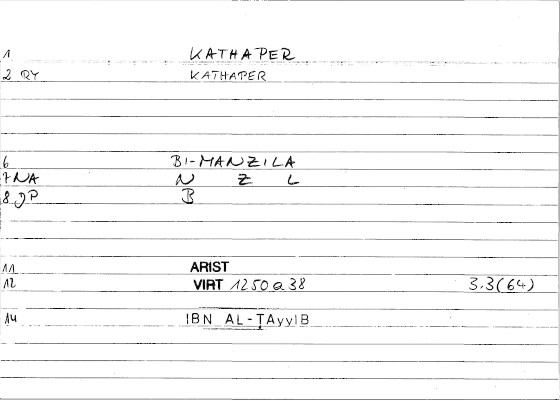 1 KATHAPER
2 RY KATHAPER
6 BI-MANZILA
7 NA N Z L
8 JP B
11 ARIST
12 VIRT 1250a38 3.3(64)
14 IBN AL-ṬAyyIB